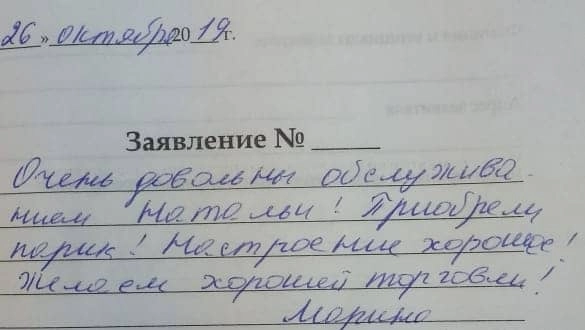 26 » октября 2019 г.
Заявление № _____
Очень довольны обслужива-
нием Натальи! Приобрели
парик! Настроение хорошее!
Желаем хорошей торговли!
Марина